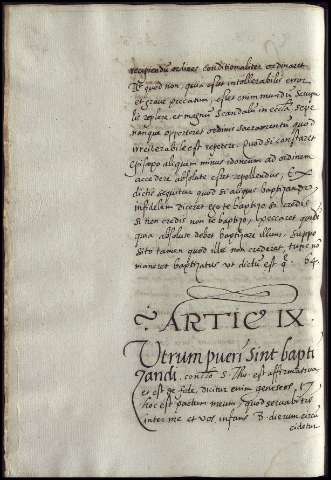 recipiendū ordines conditionaliter ordinaret
quod non, quia esset intollerabilis error
et grave peccatum, esset enim mundū Scrupu
lis replere, et magnū Scandalū in eccla, sepe
numque opporteret ordinis sacramentū quod
irreiterabile est repetere. quod si constaret
Episcopo aliquem minus idoneum ad ordinem
accedere absolute esset repellendus, Ex
dictis sequitur quod si aliquis baptizando
infidelem diceret ego te baptizo si credis
si non credis non te baptizo, peccaret quidē
quia absolute debet baptizare illum, suppo
sito tamen quod ille non crederet, tunc nō
maneret baptizatus ut dictū est q. 64.
ARTIC IX
Utrum pueri Sint bapti
zandi. S. Tho. est affirmativa
et est de fide, dicitur enim geneseos, 17
hoc est pactum meum quod servabitis
inter me et vos, infans 8 dierum circū
cidetur